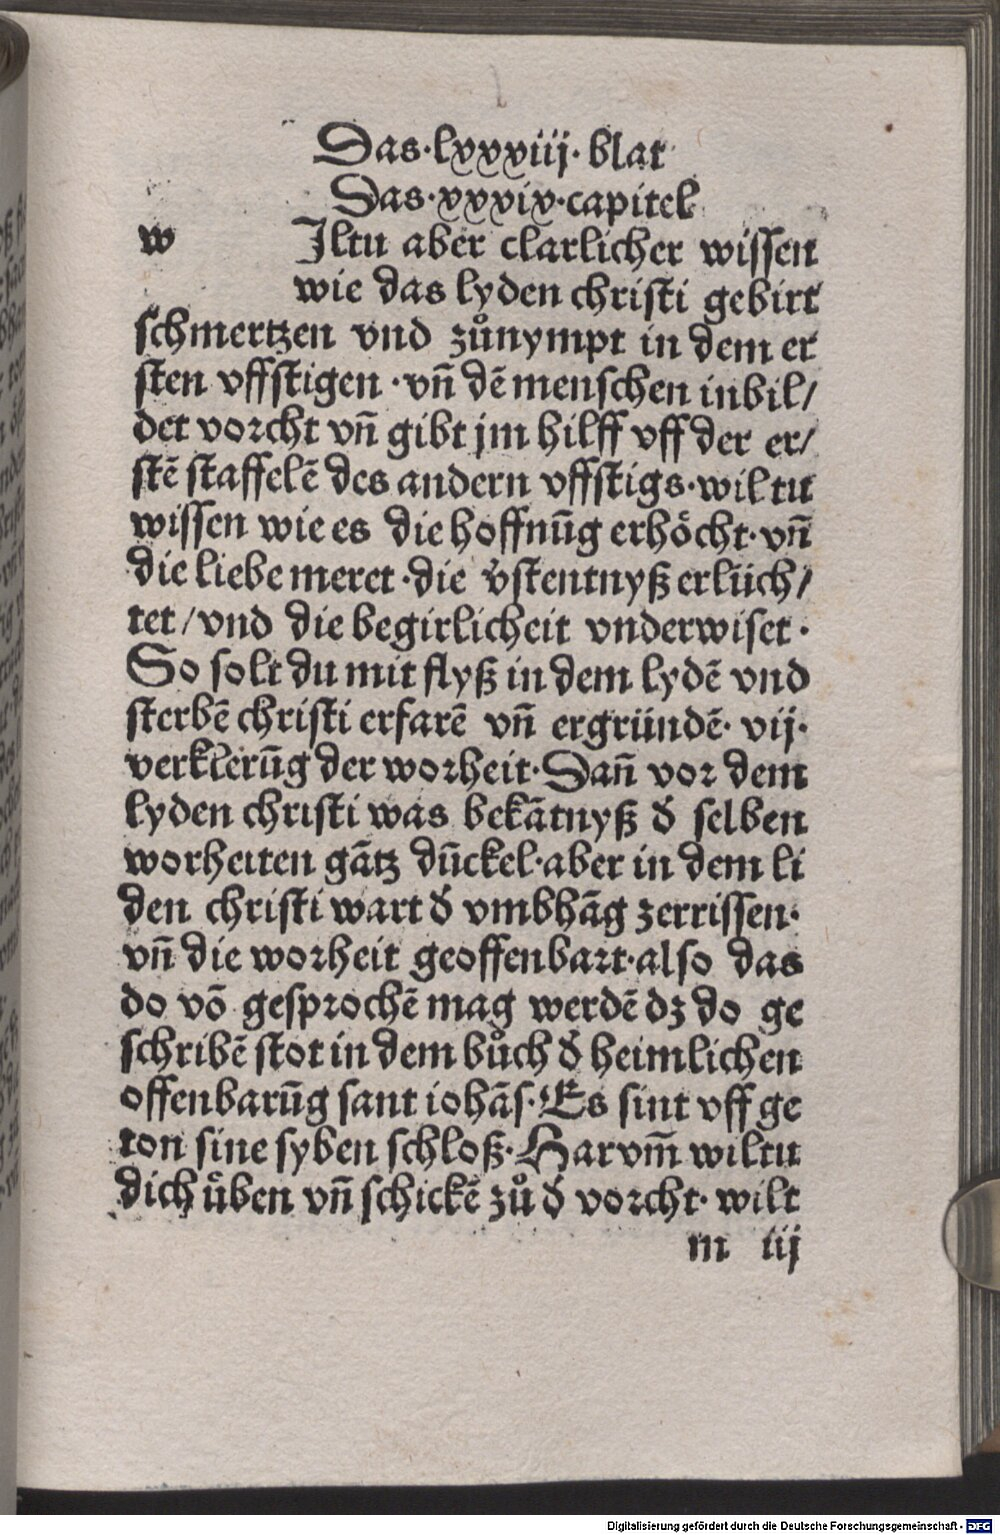 Das·lxxxiij· blat
Das·xxxix·capitel
w Iltu aber clarlicher wissen
wie das lyden christi gebirt
schmertzen vnd zůnympt in dem er
sten vffstigen ·vñ dē menschen inbil/
det vorcht vñ gibt jm hilff vff der er/
stē staffelē des andern vffstigs·wiltu
wissen wie es die hoffnūg erhöcht·vñ
die liebe meret·die v̓stentnyß erlüch/
tet/vnd die begirlicheit vnderwiset·
So solt du mit flyß in dem lydē vnd
sterbē christi erfarē vñ ergründē· vij·
verklerūg der worheit·Dañ vor dem
lyden christi was bekātnyß d̓ selben
worheiten gātz dūckel·aber in dem li
den christi wart d̓ vmbhāg zerrissen·
vñ die worheit geoffenbart·also das
do võ gesprochē mag werdē dz do ge
schribē stot in dem bůch d̓ heimlichen
offenbarūg sant iohās·Es sint vff ge
ton sine syben schloß·Harvm̄ wiltu
dich üben vñ schickē zů d̓ vorcht· wilt
m iij
Digitalisierung gefördert durch die Deutsche Forschungsgemeinschaft - DFG